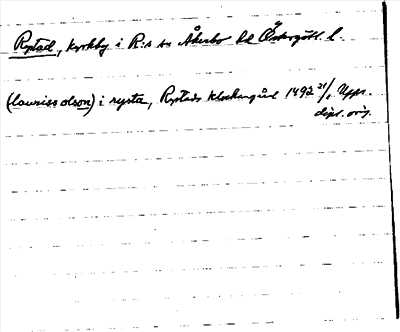 Rystad, kyrkby i R:s sn Åkerbo hd Östergötl. l.
(lauriss olson) i rysta, Rystads klockargård 1492 21/1 Upps.
dipl. orig.